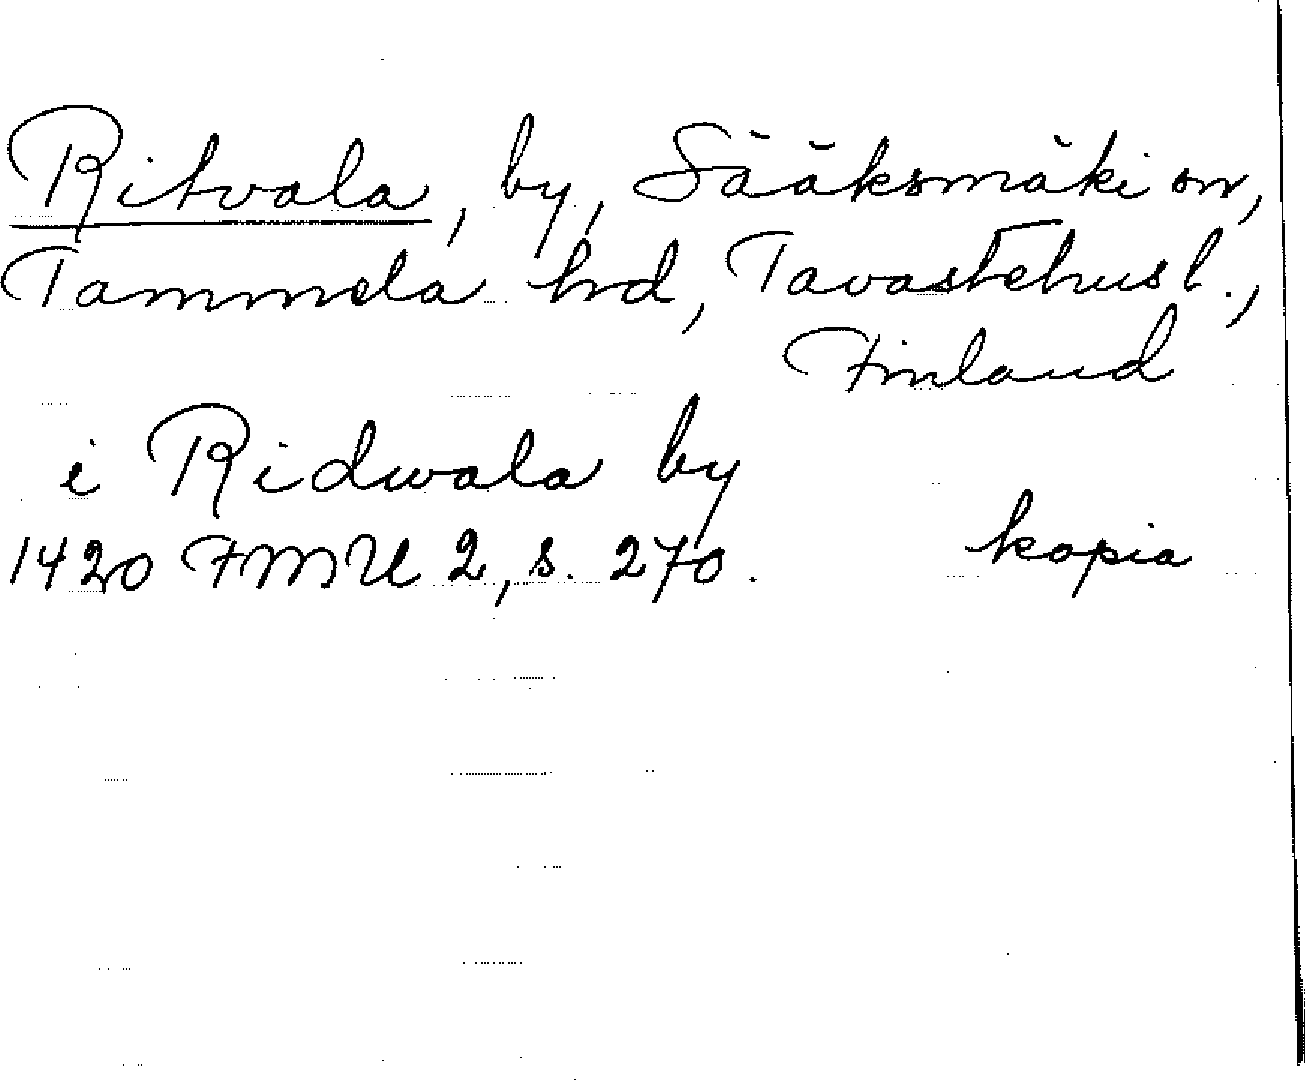 Ritvala, by, Sääksmäki sn,
Tammela hrd, Tavastehus l.,
Finland
i Ridwala by
1420 FMU 2, s. 270. kopia